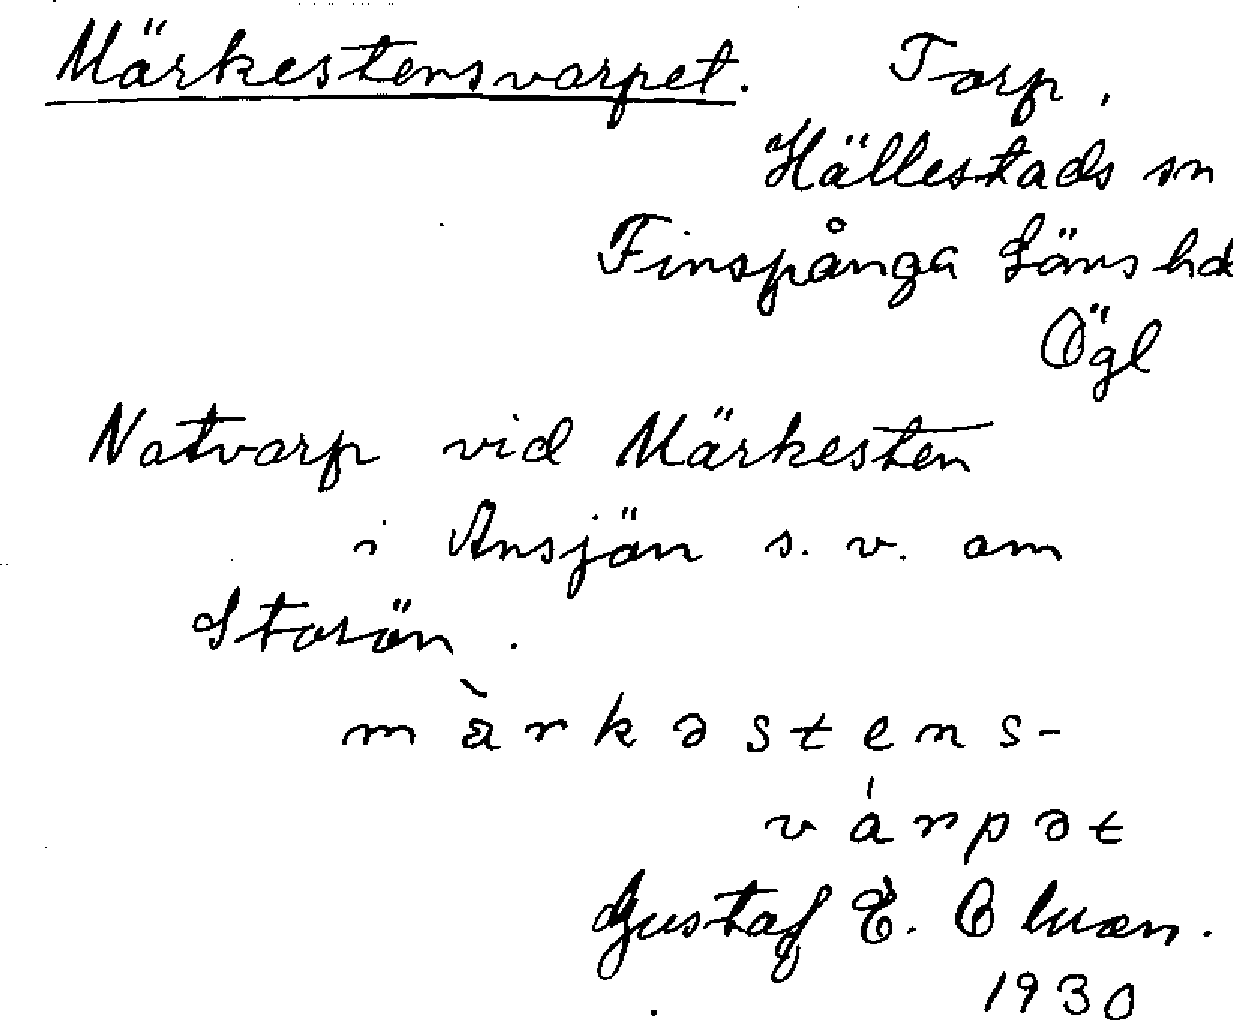 Märkestensvarpet. Torp.
Hällestads sn
Finspånga Läns hd
Ögl
Notvarp vid Märkesten
i Ånsjön s. v. om
Storön.
m æ̀ r k ə s t e n s -
v á r p ə t
Gustaf E.
1930